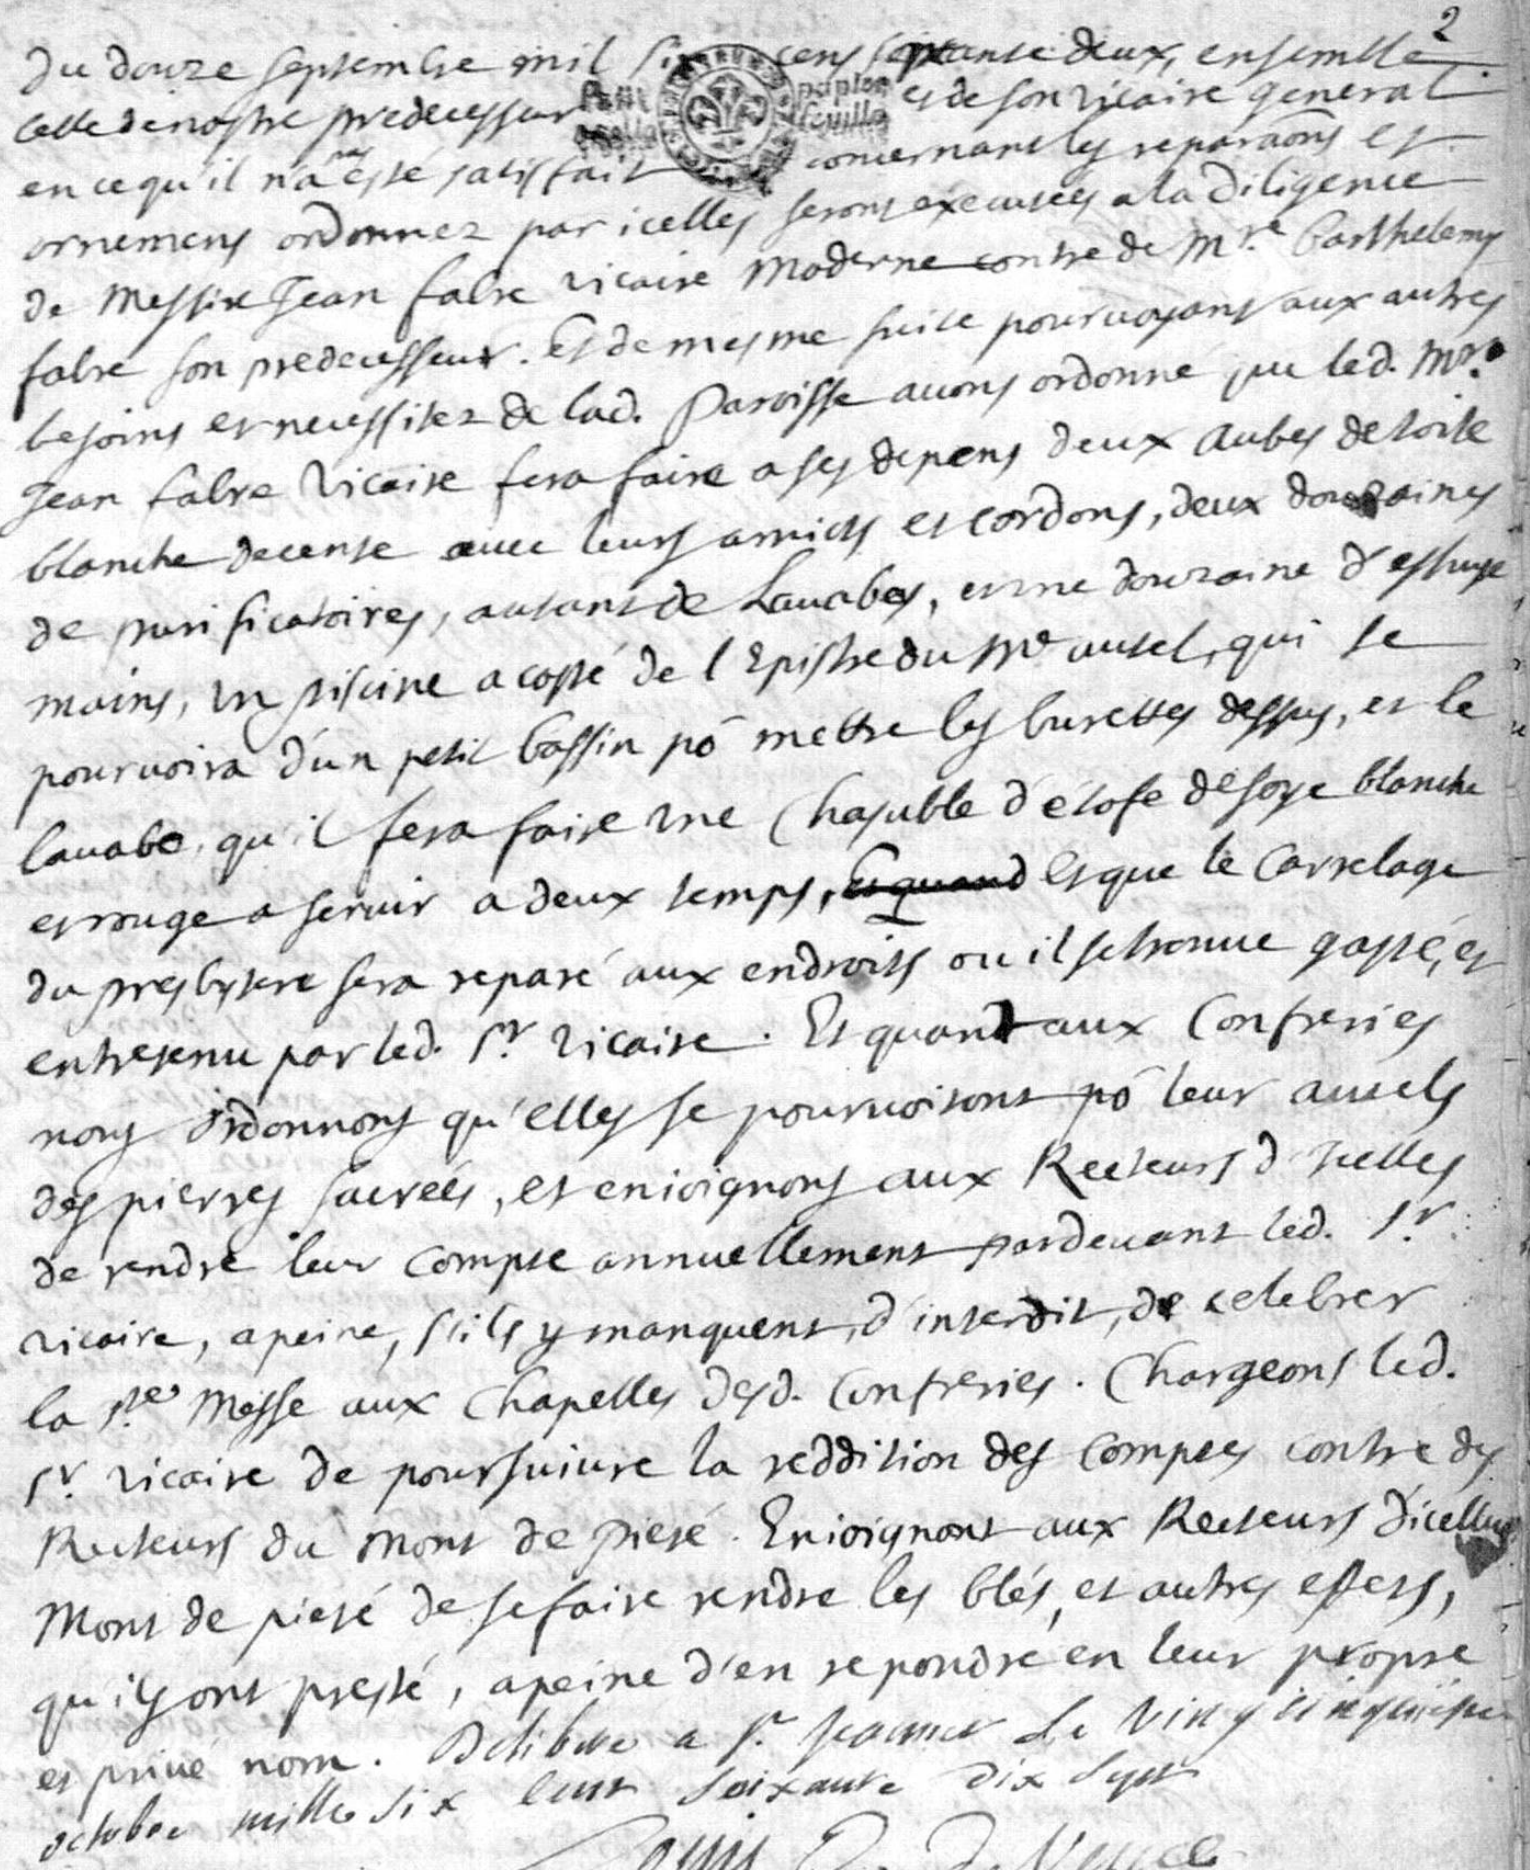 2
du douze septembre mil six cens septante deux, ensemble
celle de nostre predecesseur et de son vicaire general
en ce qu'il n'a pas esté satisfait concernant les reparaõns et
ornemens ordonnez par icelles seront executées a la diligence
de Messire Jean fabre vicaire moderne contre de Mre. barthelemy
fabre son predecesseur. Et de mesme suite pourvoyant aux autres
besoins et necessitez de lad. Paroisse avons ordonné que led. Mre.
Jean fabre vicaire fera faire a ses depens deux aubes de toile
blanche decente avec leurs amicts et cordons, deux douzaines
de purificatoires, autant de Lavabes, et une douzaine d'essuye
mains, un piscine a costé de l'Epistre du Me autel, qui se
pourvoira d'un petit bassin põ mettre les burettes dessus, et le
lavabo, qu'il fera faire une Chasuble d'étofe de soye blanche
et rouge a servir a deux temps, Et quand et que le carrelage
du presbytere sera reparé aux endroits ou il se trouve gasté, et
entretenu par led. Sr. vicaire. Et quant aux Confreries
nous ordonnons qu'elles se pourvoiront põ leur autels
des pierres sacrées, et enioignons aux Recteurs d'icelles
de rendre leur compte annuellement pardevant led. Sr.
vicaire, a peine, s'ils y manquent, d'interdit, de celebrer
la Ste. Messe aux Chapelles desd. Confreries. Chargeons led.
Sr. vicaire de poursuivre la reddition des comptes contre des
Recteurs du mont de pieté. Enioignont aux Recteurs d'icelluy
Mont de pieté de se faire rendre les blés, et autres effets,
qu'ils ont presté, a peine d'en repondre en leur propre
et privé nom. Delibere a St. Jeannet le vingt cinquiesme
octobre mille six cent soixante dix sept
Louis de Vence